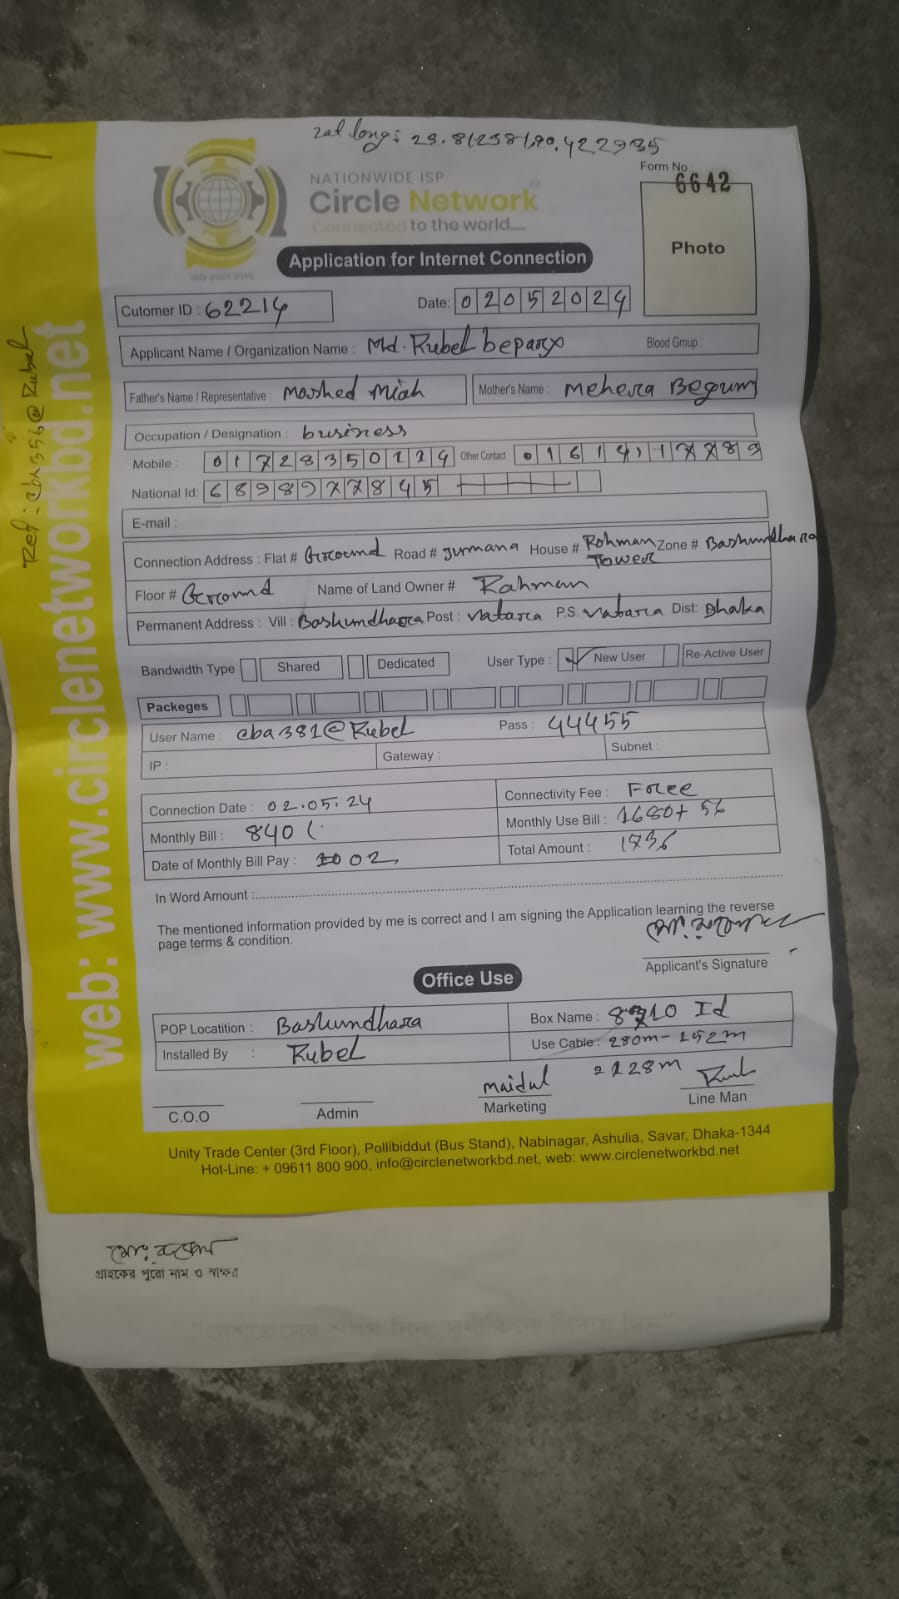 Lat long: 23.81258,90.422935
Form No
6642
NATIONWIDE ISP
Circle Network
Connected to the world....
ISO 9001:2015
Photo
Application for Internet Connection
Cutomer ID : 62214 Date: 02052024
Applicant Name / Organization Name : Md. Rubel bepary Blood Group :
Father's Name / Representative : Morshed Miah Mother's Name : Mehera Begum
Occupation / Designation : business
Mobile : Other Contact
National Id: 6898977845
E-mail :
Connection Address : Flat # Ground Road # Jurmana House # Rohman Tower Zone # Bashundhara
Floor # Ground Name of Land Owner # Rahman
Permanent Address : Vill : Bashundhara Post : Vatara P.S. Vatara Dist: Dhaka
Bandwidth Type Shared Dedicated User Type : ✓ New User Re-Active User
Packeges
User Name : cba381@Rubel Pass : 44455
IP : Gateway : Subnet :
Connection Date : 02.05.24 Connectivity Fee : Free
Monthly Bill : 840 Monthly Use Bill : 1680+ 56
Date of Monthly Bill Pay : 02 Total Amount : 1736
In Word Amount :
The mentioned information provided by me is correct and I am signing the Application learning the reverse
page terms & condition.
Applicant's Signature
Office Use
POP Locatition : Bashundhara Box Name : Id
Installed By : Rubel Use Cable : 280m - 152m
128m
maidul
C.O.O Admin Marketing Line Man
Unity Trade Center (3rd Floor), Pollibiddut (Bus Stand), Nabinagar, Ashulia, Savar, Dhaka-1344
Hot-Line: + 09611 800 900, info@circlenetworkbd.net, web: www.circlenetworkbd.net
web: www.circlenetworkbd.net
Ref: cba356@Rubel
মোঃ রুবেল
গ্রাহকের পুরো নাম ও স্বাক্ষর